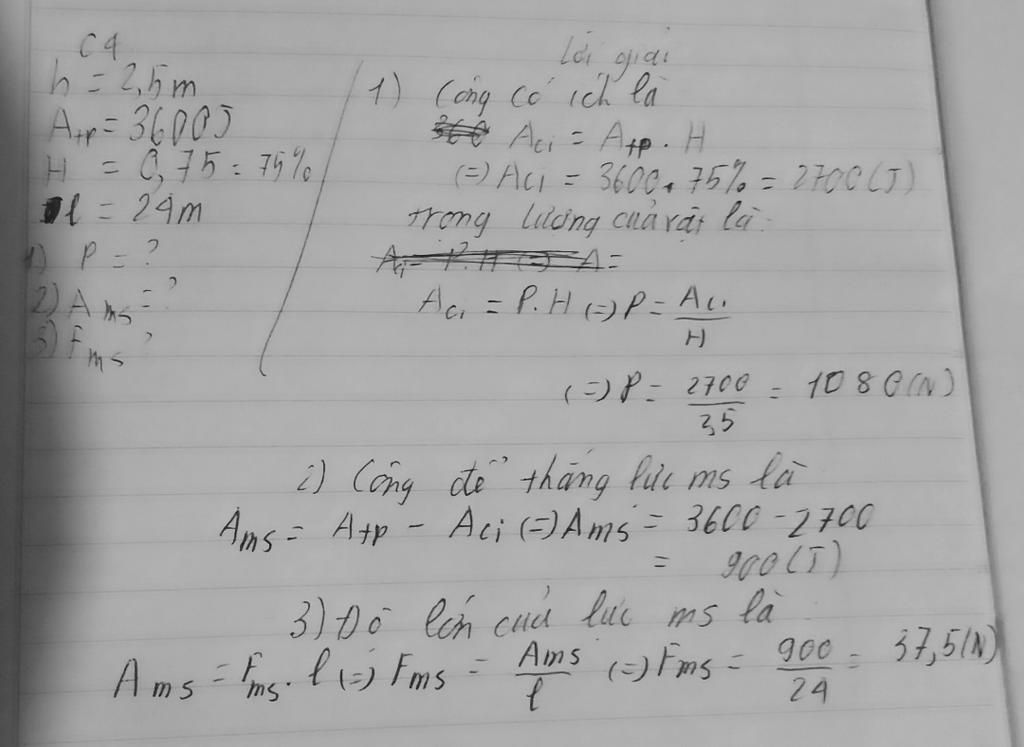 C4
h = 2,5m
Atp = 3600J
H = 0,75 = 75%
l = 24m
1) P = ?
2) Ams = ?
3) Fms ?
Lời giải
1) Công có ích là
Aci = Atp . H
(=) Aci = 3600 . 75% = 2700 (J)
trong lương của vật là:
Aci = P.H (=) P = Aci / H
(=) P = 2700 / 2,5 = 1080 (N)
2) Công để thăng lực ms là
Ams = Atp - Aci (=) Ams = 3600 - 2700
= 900 (J)
3) Độ lớn của lực ms là
Ams = Fms. l (=) Fms = Ams / l (=) Fms = 900 / 24 = 37,5 (N)